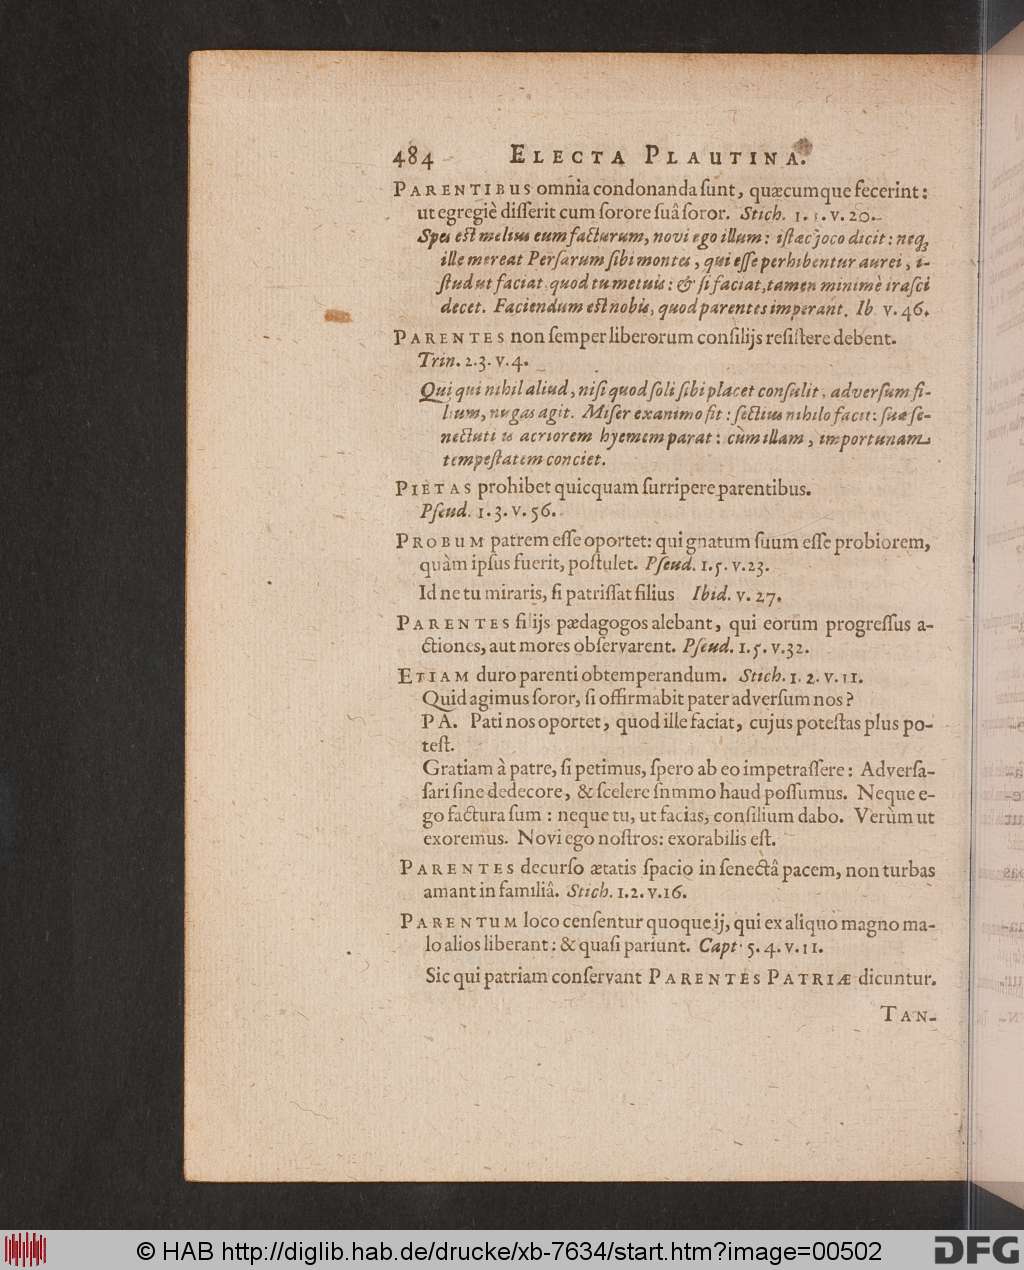 484 ELECTA PLAUTINA.
PARENTIBUS omnia condonanda ſunt, quæcumque fecerint:
ut egregiè diſſerit cum ſorore ſuâ ſoror. Stich. 1. 1. v. 20.
Spes eſt melius eum facturum, novi ego illum: iſtæc joco dicit: neq;
ille mereat Perſarum ſibi montes, qui eſſe perhibentur aurei, i-
ſtud ut faciat, quod tu metuis: & ſi faciat, tamen minimè iraſci
decet. Faciendum eſt nobis, quod parentes imperant. Ib. v. 46.
PARENTES non ſemper liberorum conſilijs reſiſtere debent.
Trin. 2. 3. v. 4.
Qui qui nihil aliud, niſi quod ſoli ſibi placet conſulit, adverſum fi-
lium, nugas agit. Miſer ex animo fit: ſectius nihilo facit: ſuæ ſe-
nectuti is acriorem hyemem parat: cùm illam, importunam
tempeſtatem conciet.
PIETAS prohibet quicquam ſurripere parentibus.
Pſeud. 1. 3. v. 56.
PROBUM patrem eſſe oportet: qui gnatum ſuum eſſe probiorem,
quàm ipſus fuerit, poſtulet. Pſeud. 1. 5. v. 23.
Id ne tu miraris, ſi patriſſat filius Ibid. v. 27.
PARENTES filijs pædagogos alebant, qui eorum progreſſus a-
ctiones, aut mores obſervarent. Pſeud. 1. 5. v. 32.
ETIAM duro parenti obtemperandum. Stich. 1. 2. v. 11.
Quid agimus ſoror, ſi offirmabit pater adverſum nos?
PA. Pati nos oportet, quod ille faciat, cujus poteſtas plus po-
teſt.
Gratiam à patre, ſi petimus, ſpero ab eo impetraſſere: Adverſa-
ſari ſine dedecore, & ſcelere ſummo haud poſſumus. Neque e-
go factura ſum: neque tu, ut facias, conſilium dabo. Verùm ut
exoremus. Novi ego noſtros: exorabilis eſt.
PARENTES decurſo ætatis ſpacio in ſenectâ pacem, non turbas
amant in familiâ. Stich. 1. 2. v. 16.
PARENTUM loco cenſentur quoque ij, qui ex aliquo magno ma-
lo alios liberant: & quaſi pariunt. Capt. 5. 4. v. 11.
Sic qui patriam conſervant PARENTES PATRIÆ dicuntur.
TAN-
© HAB http://diglib.hab.de/drucke/xb-7634/start.htm?image=00502
DFG